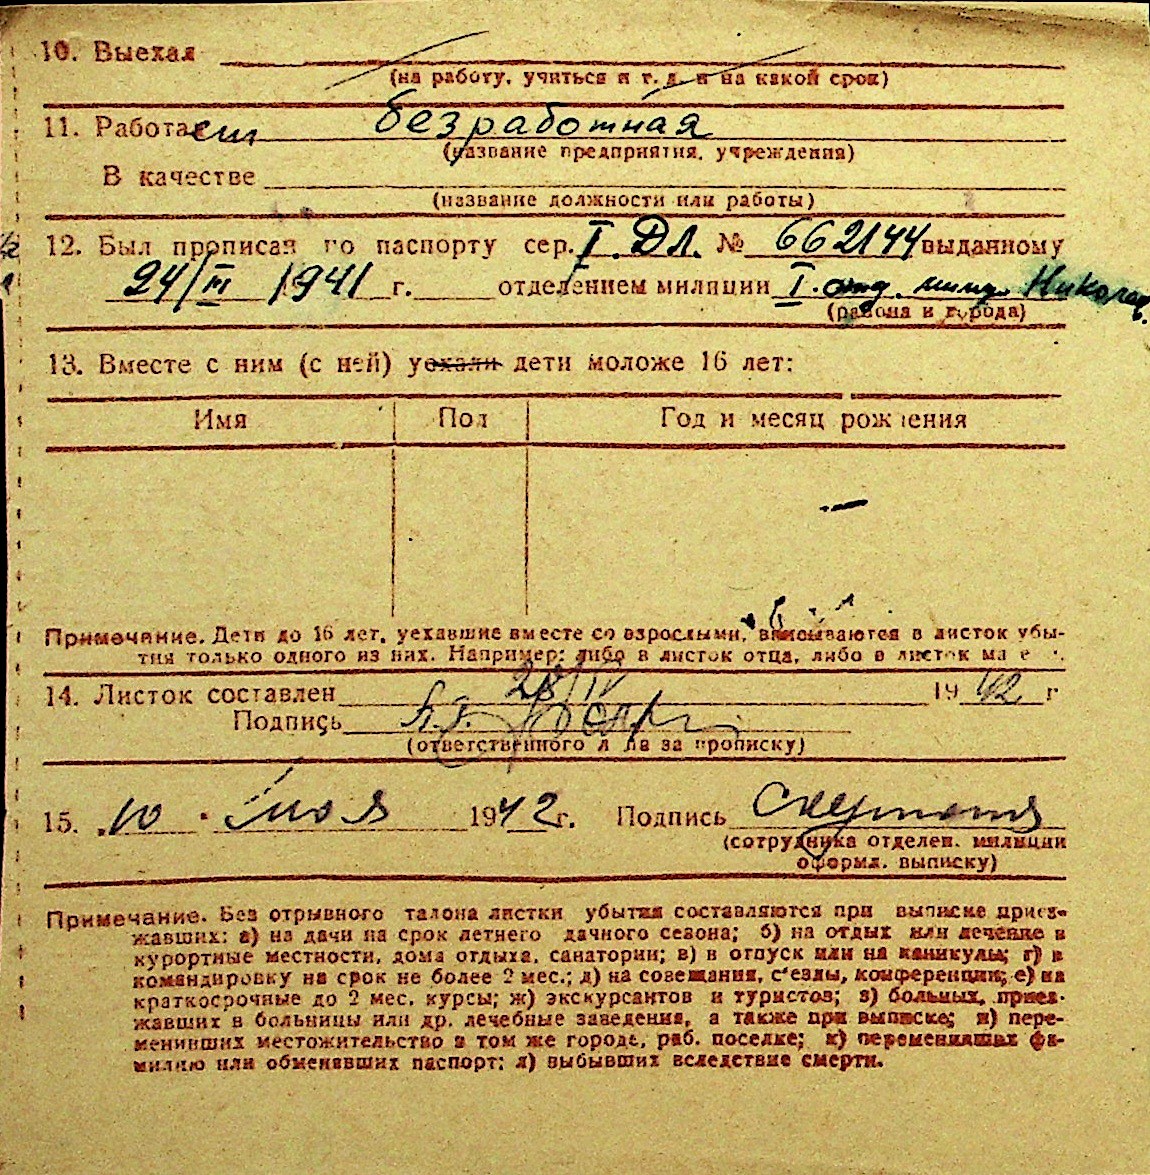 10. Выехал
(на работу, учиться и т. д. и на какой срок)
11. Работает безработная
(название предприятия, учреждения)
В качестве
(название должности или работы)
12. Был прописан по паспорту сер. I ДЛ. № 662144 выданному
24/III 1941 г. отделением милиции I. отд. мил. Николаев.
(района и города)
13. Вместе с ним (с ней) уехали дети моложе 16 лет:
Имя Пол Год и месяц рождения
Примечание. Дети до 16 лет, уехавшие вместе со взрослыми, вписываются в листок убы-
тия только одного из них. Например: либо в листок отца, либо в листок
14. Листок составлен 28/IV 1942 г
Подпись
(ответственного лица за прописку)
15. 10 мая 1942 г. Подпись
(сотрудника отделен. милиции
оформл. выписку)
Примечание. Без отрывного талона листки убытия составляются при выписке приез-
жавших: а) на дачи на срок летнего дачного сезона; б) на отдых или лечение в
курортные местности, дома отдыха, санатории; в) в отпуск или на каникулы; г) в
командировку на срок не более 2 мес.; д) на совещания, с'езды, конференции; е) на
краткосрочные до 2 мес. курсы; ж) экскурсантов и туристов; з) больных, приез-
жавших в больницы или др. лечебные заведения, а также при выписке; и) пере-
менивших местожительство в том же городе, раб. поселке; к) переменивших фа-
милию или обменявших паспорт; л) выбывших вследствие смерти.